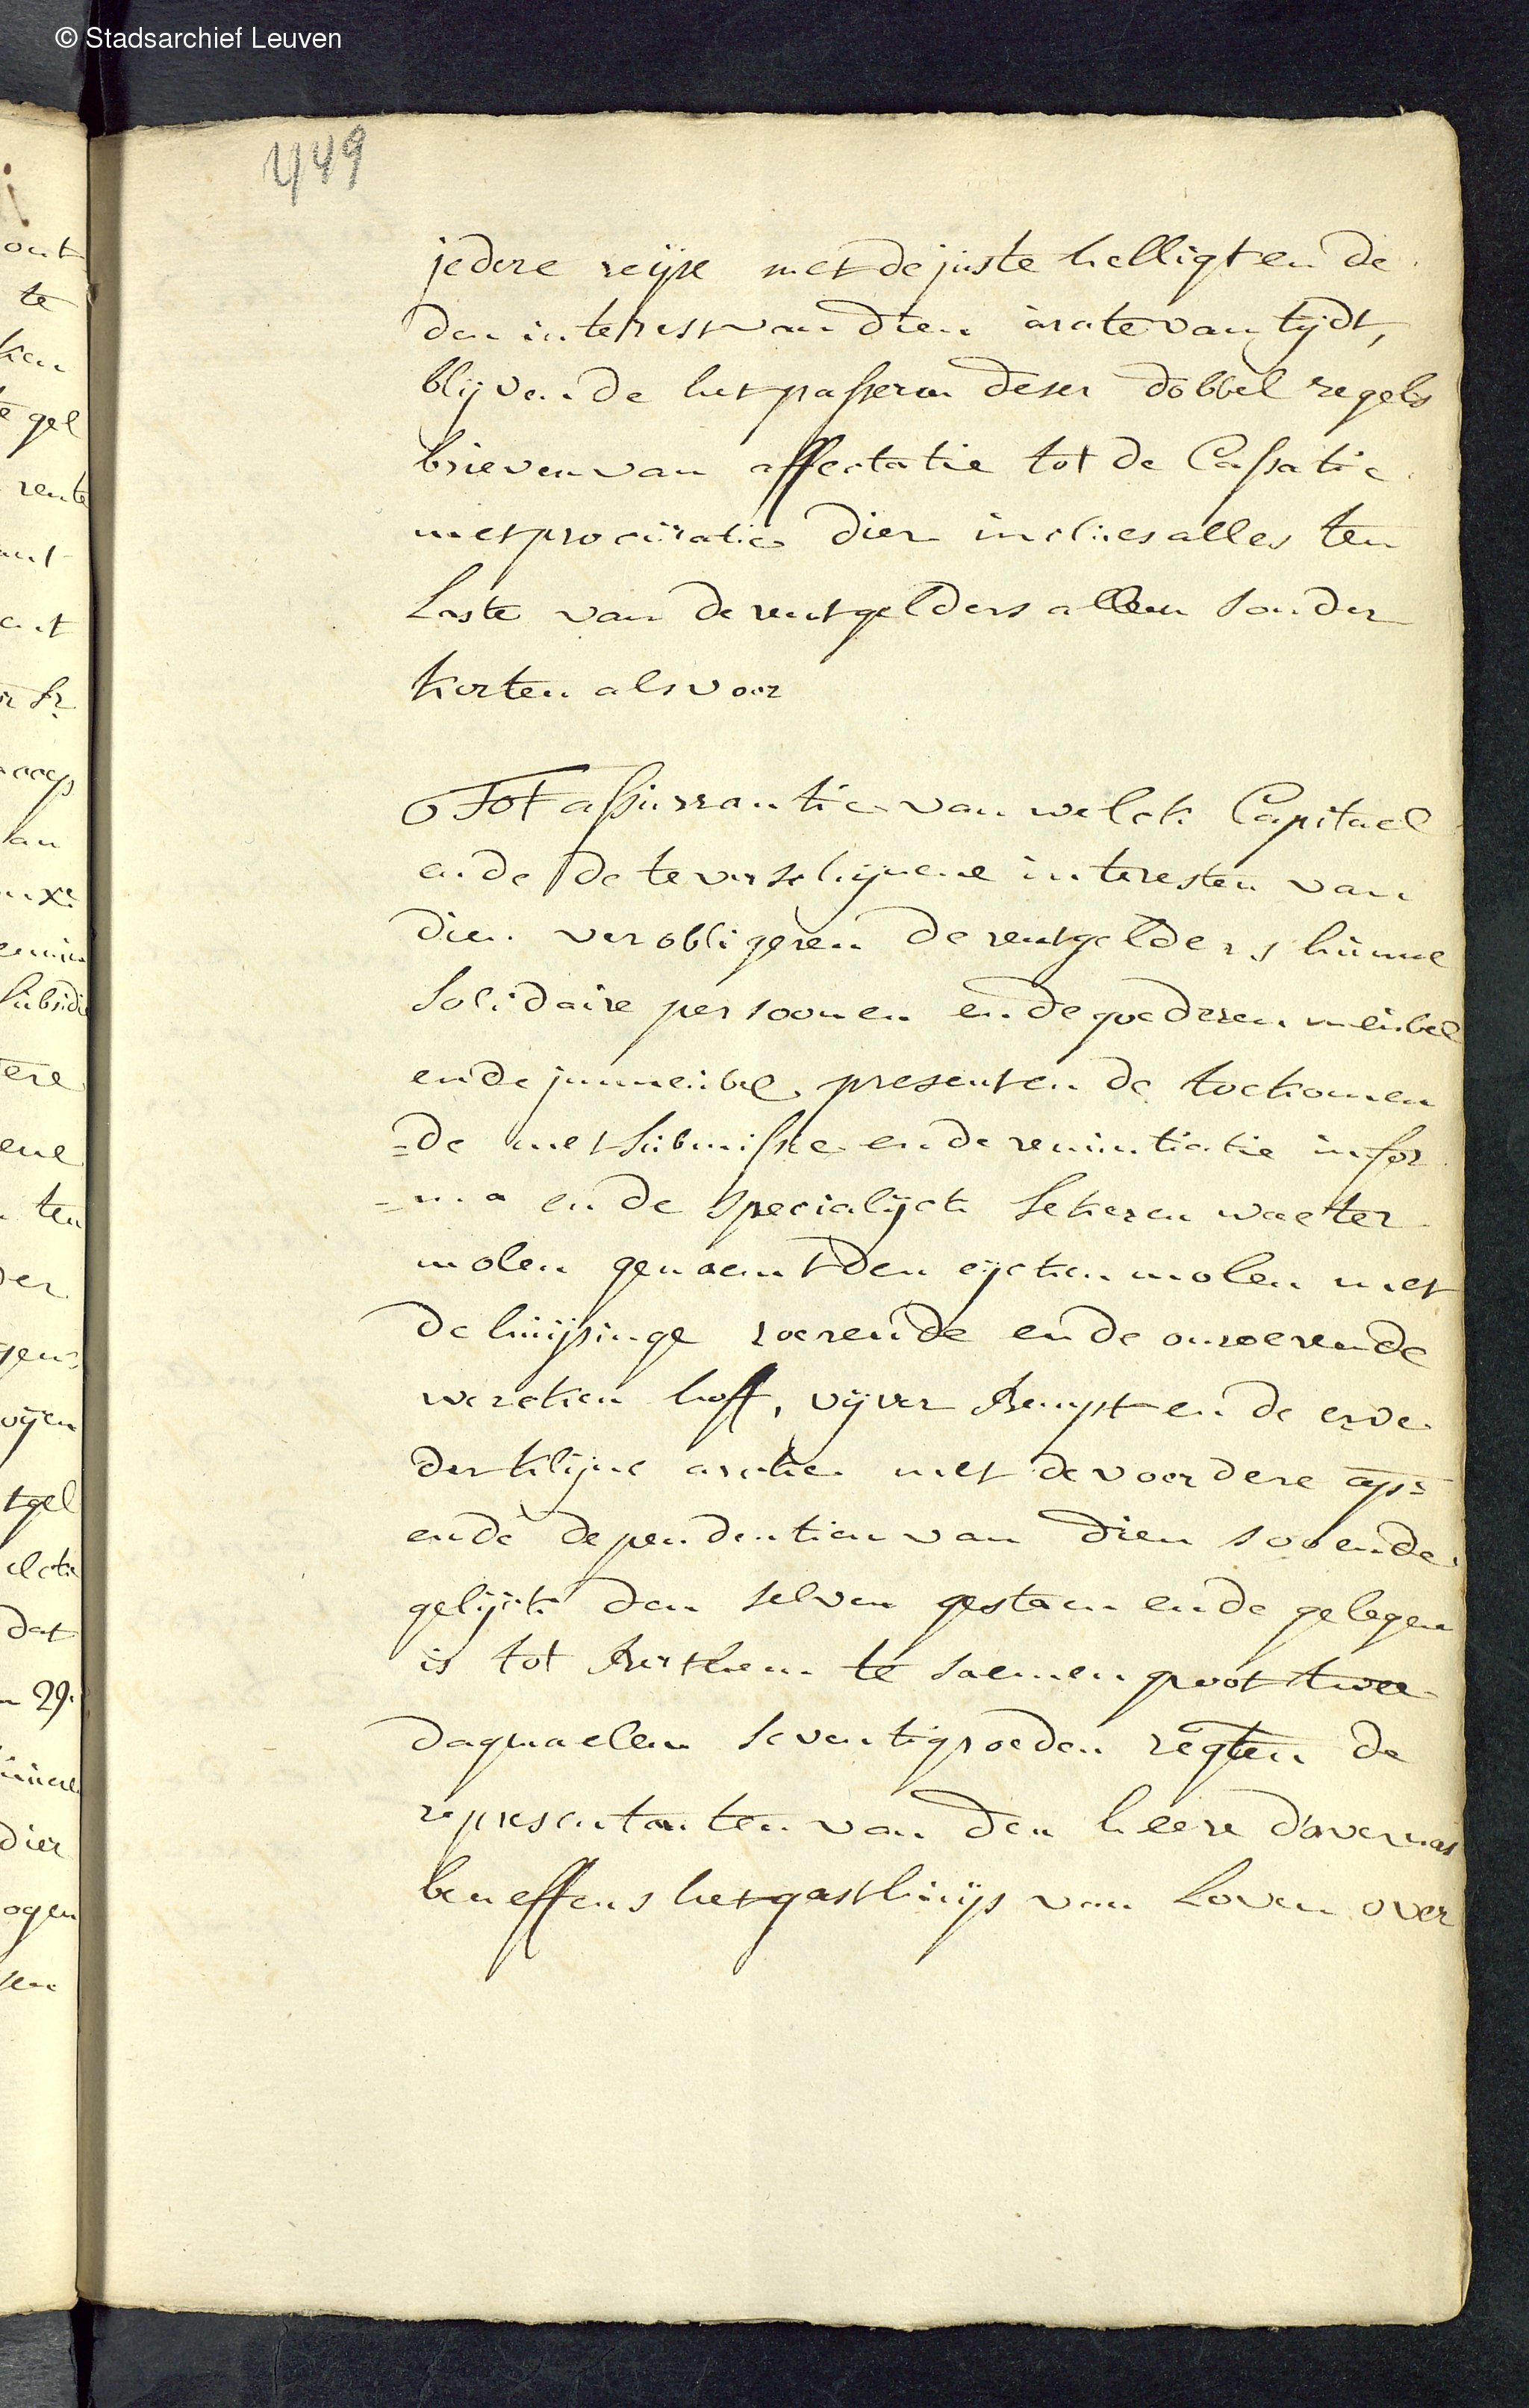 © Stadsarchief Leuven
449
jedere reijse met de juste helligt ende
den interest van dien à rate van tijdt,
blijvende het passeren deser dobbel regels
brieven van affectatie tot de Cassatie
met procuratie dier inclies alles ten
laste van de rentgelders alleen sonder
korten als voor
Tot assurrantie van welck Capitael
ende de te verschijnene interesten van
dien verobligeren de rentgelders hunne
solidaire persoonen ende goederen meubel
ende jmmeubel present ende toekomen
=de met submissie ende renuntiatie in for
=ma ende specialijck sekeren waeter
molen genaemt den eycken molen met
de huijsinge roerende ende onroerende
wercken hoff, vijver Bempt ende erve
der klijne arcke met de voordere ap=
ende dependentien van dien soo ende
gelijck den selven gestaen ende gelegen
is tot Berthem te saemen groot twee
dagmaelen seventig roeden regten de
representanten van den heere d'overnas
beneffens het gasthuijs van Loven over